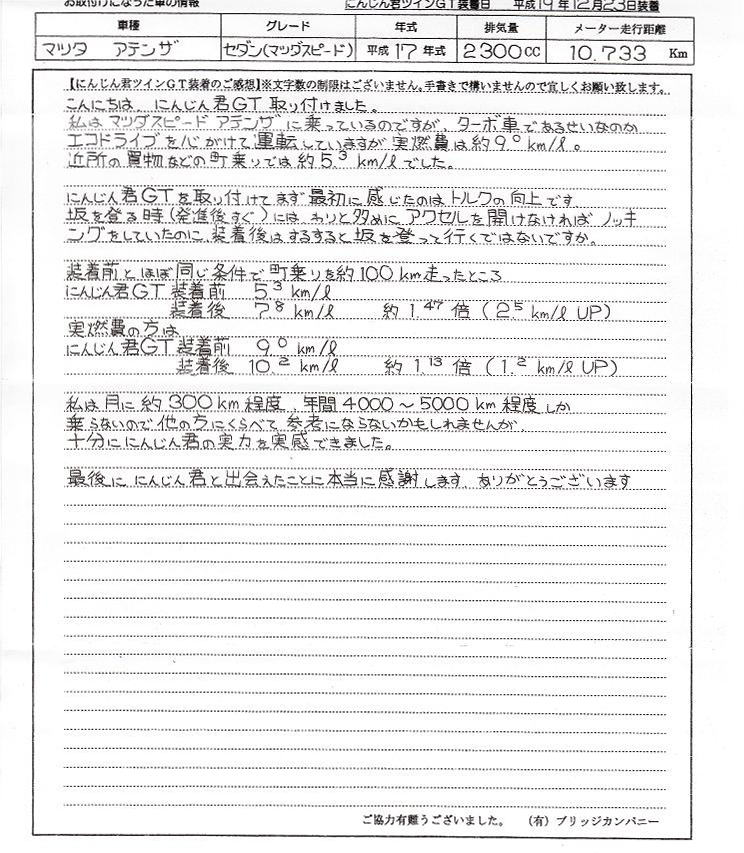 お取付けになった車の情報 にんじん君ツインGT装着日 平成19年12月23日装着
車種 グレード 年式 排気量 メーター走行距離
マツダ アテンザ セダン(マツダスピード) 平成17年式 2300CC 10.733 Km
【にんじん君ツインGT装着のご感想】※文字数の制限はございません。手書きで構いませんので宜しくお願い致します。
こんにちは、にんじん君GT取り付けました。
私はマツダスピード アテンザに乗っているのですが、ターボ車であるせいなのか
エコドライブを心がけて運転していますが実燃費は約9.0km/ℓ。
近所の買物などの町乗りでは約5.3km/ℓでした。
にんじん君GTを取り付けてまず最初に感じたのはトルクの向上です
坂を登る時(発進後すぐ)には、わりと多めにアクセルを開けなければノッキ
ングをしていたのに、装着後はするすると坂を登って行くではないですか。
装着前とほぼ同じ条件で町乗りを約100km走ったところ
にんじん君GT装着前 5.3km/ℓ
装着後 7.8km/ℓ 約1.47倍(2.5km/ℓUP)
実燃費の方は
にんじん君GT装着前 9.0km/ℓ
装着後 10.2km/ℓ 約1.13倍(1.2km/ℓUP)
私は月に約300km程度、年間4000～5000km程度しか
乗らないので他の方にくらべて参考にならないかもしれませんが
十分ににんじん君の実力を実感できました。
最後ににんじん君と出会えたことに本当に感謝します、ありがとうございます
ご協力有難うございました。 (有)ブリッジカンパニー